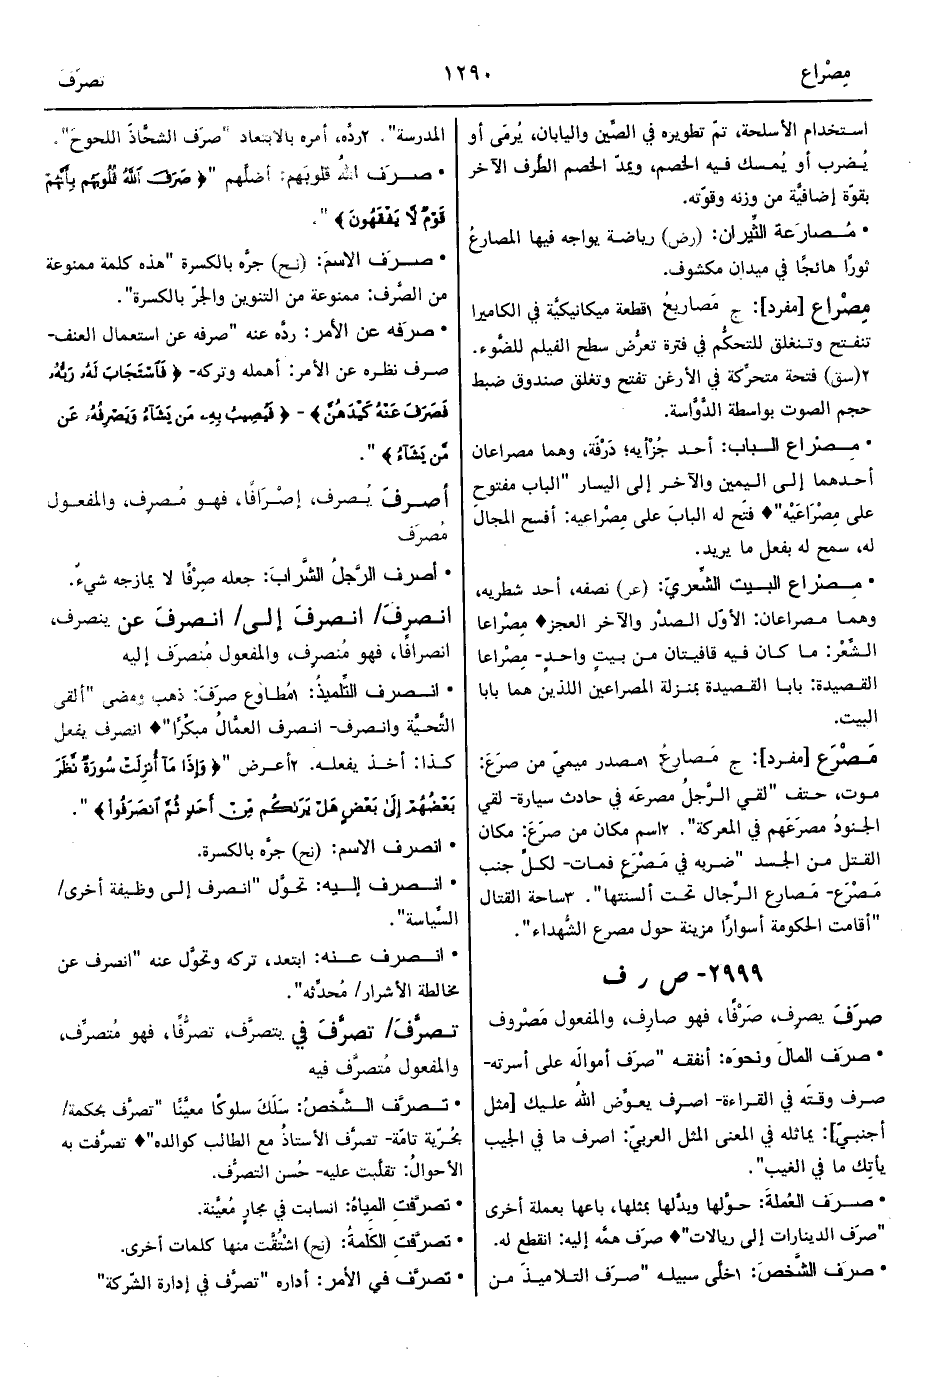 مِصْراع
١٢٩٠
تصرَّفَ
استخدام الأسلحة، تمّ تطويره في الصِّين واليابان، يُرمَى أو
يُضرب أو يُمسك فيه الخصم، ويمدّ الخصم الطَّرف الآخر
بقوّة إضافيَّة من وزنه وقوّته.
• مُصارَعة الثِّيران: (رض) رياضة يواجه فيها المصارعُ
ثورًا هائجًا في ميدان مكشوف.
مِصْراع [مفرد]: ج مَصاريعُ ١قطعة ميكانيكيَّة في الكاميرا
تنفتح وتنغلق للتحكُّم في فترة تعرُّض سطح الفيلم للضَّوء.
٢(سق) فتحة متحرِّكة في الأرغن تفتح وتغلق صندوق ضبط
حجم الصوت بواسطة الدَّوَّاسة.
• مِصْراع الباب: أحد جُزْأيه؛ دَرْفَة، وهما مصراعان
أحدهما إلى اليمين والآخر إلى اليسار "الباب مفتوح
على مِصْراعَيْه"♦ فتح له البابَ على مِصْراعيه: أفسح المجالَ
له، سمح له بفعل ما يريد.
• مِصْراع البيت الشِّعريّ: (عر) نصفه، أحد شطريه،
وهما مصراعان: الأوّل الصدْر والآخر العجز♦ مِصْراعا
الشِّعْر: ما كان فيه قافيتان من بيتٍ واحدٍ- مِصْراعا
القصيدة: بابا القصيدة بمنزلة المصراعين اللذين هما بابا
البيت.
مَصْرَع [مفرد]: ج مَصارعُ ١مصدر ميميّ من صرَعَ:
موت، حتف "لقي الرَّجلُ مصرعَه في حادث سيارة- لقي
الجنودُ مصرَعَهم في المعركة". ٢اسم مكان من صرَعَ: مكان
القتل من الجسد "ضربه في مَصْرَع فمات- لكلِّ جنب
مَصْرَع- مَصارع الرِّجال تحت ألسنتها". ٣ساحة القتال
"أقامت الحكومة أسوارًا مزينة حول مصرع الشُّهداء".
٢٩٩٩- ص ر ف
صرَفَ يصرِف، صَرْفًا، فهو صارِف، والمفعول مَصْروف
• صرَف المالَ ونحوَه: أنفقه "صرَف أموالَه على أسرته-
صرف وقتَه في القراءة- اصرِف يعوِّض اللهُ عليك [مثل
أجنبيّ]: يماثله في المعنى المثل العربيّ: اصرف ما في الجيب
يأتِك ما في الغيب".
• صرَف العُملةَ: حوَّلها وبدَّلها بمثلها، باعها بعملة أخرى
"صرَف الدينارات إلى ريالات"♦ صرَف همَّه إليه: انقطع له.
• صرَف الشَّخصَ: ١خلَّى سبيله "صرَف التلاميذَ من
المدرسة". ٢ردَّه، أمره بالابتعاد "صرَف الشحَّاذَ اللحوحَ".
• صرَف اللهُ قلوبَهم: أضلَّهم "﴿ صَرَفَ اللَّهُ قُلُوبَهُم بِأَنَّهُمْ
قَوْمٌ لَا يَفْقَهُونَ ﴾".
• صرَف الاسمَ: (نح) جرَّه بالكسرة "هذه كلمة ممنوعة
من الصَّرف: ممنوعة من التنوين والجرّ بالكسرة".
• صرفَه عن الأمر: ردَّه عنه "صرفه عن استعمال العنف-
صرف نظره عن الأمر: أهمله وتركه- ﴿ فَاسْتَجَابَ لَهُ رَبُّهُ
فَصَرَفَ عَنْهُ كَيْدَهُنَّ ﴾ - ﴿ فَيُصِيبُ بِهِ مَن يَشَاءُ وَيَصْرِفُهُ عَن
مَّن يَشَاءُ ﴾".
أصرفَ يُصرف، إصْرَافًا، فهو مُصرِف، والمفعول
مُصرَف
• أصرف الرَّجلُ الشَّرابَ: جعله صِرْفًا لا يمازجه شيءٌ.
انصرفَ/ انصرفَ إلى/ انصرفَ عن ينصرف،
انصرافًا، فهو مُنصرِف، والمفعول مُنصرَف إليه
• انصرف التِّلميذُ: ١مُطاوع صرَفَ: ذهب ومضى "ألقى
التَّحيَّة وانصرف- انصرف العمَّالُ مبكِّرًا"♦ انصرف يفعل
كذا: أخذ يفعله. ٢أعرض "﴿ وَإِذَا مَا أُنزِلَتْ سُورَةٌ نَّظَرَ
بَعْضُهُمْ إِلَى بَعْضٍ هَلْ يَرَاكُم مِّنْ أَحَدٍ ثُمَّ انصَرَفُوا ﴾".
• انصرف الاسم: (نح) جرَّه بالكسرة.
• انصرف إليه: تحوَّل "انصرف إلى وظيفة أخرى/
السِّياسة".
• انصرف عنه: ابتعد، تركه وتحوَّل عنه "انصرف عن
مخالطة الأشرار/ مُحدِّثه".
تصرَّفَ/ تصرَّفَ في يتصرَّف، تصرُّفًا، فهو مُتصرِّف،
والمفعول مُتصرَّف فيه
• تصرَّف الشَّخصُ: سَلَكَ سلوكًا معيَّنًا "تصرَّف بحكمة/
بحُرِّية تامّة- تصرَّف الأستاذُ مع الطالب كوالده"♦ تصرَّفت به
الأحوالُ: تقلَّبت عليه- حُسن التصرُّف.
• تصرَّفتِ المياهُ: انسابت في مجارٍ مُعيَّنة.
• تصرَّفتِ الكلمةُ: (نح) اشتُقَّت منها كلمات أخرى.
• تصرَّف في الأمر: أداره "تصرَّف في إدارة الشّركة"